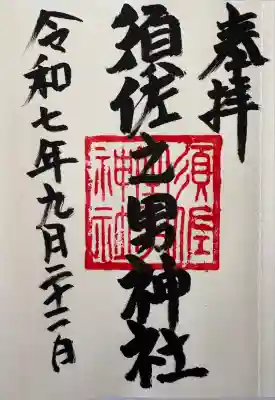 奉拝
須佐之男神社
須佐之男神社
令和七年九月二十二日